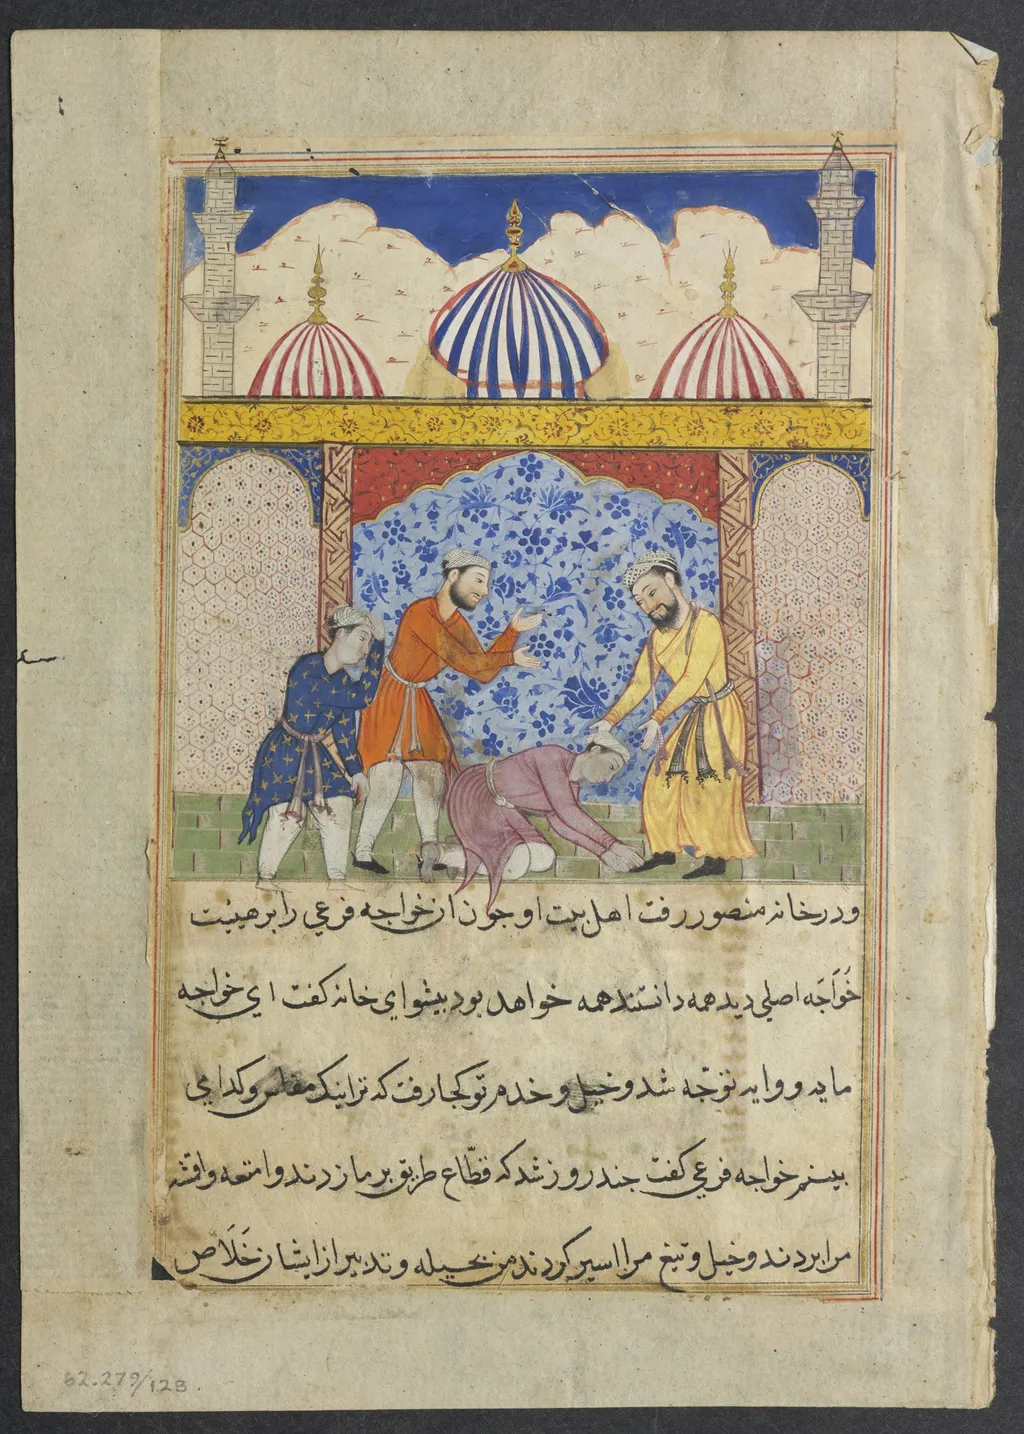 ودر خانه منصور رفت اهل بیت او جون ان خواجه فرعی را بر هیئت
خُوَاجَه اصلی دید همه دانستند همه خواهد بود بیشوای خانه کفت ای خواجه
مایه و وایه توجّه شد وخیل و خدم تو کجا رفت که ترا اینک مفلس وکدا می
بینم خواجه فرعی کفت جند روز شد که قطّاع طریق بر ما زدند وامتعه واقشه
مرا بردند وخیل وتیغ مرا اسیر کردند من بحیله وتدبیر از ایشان خَلَاص
62.279/128.